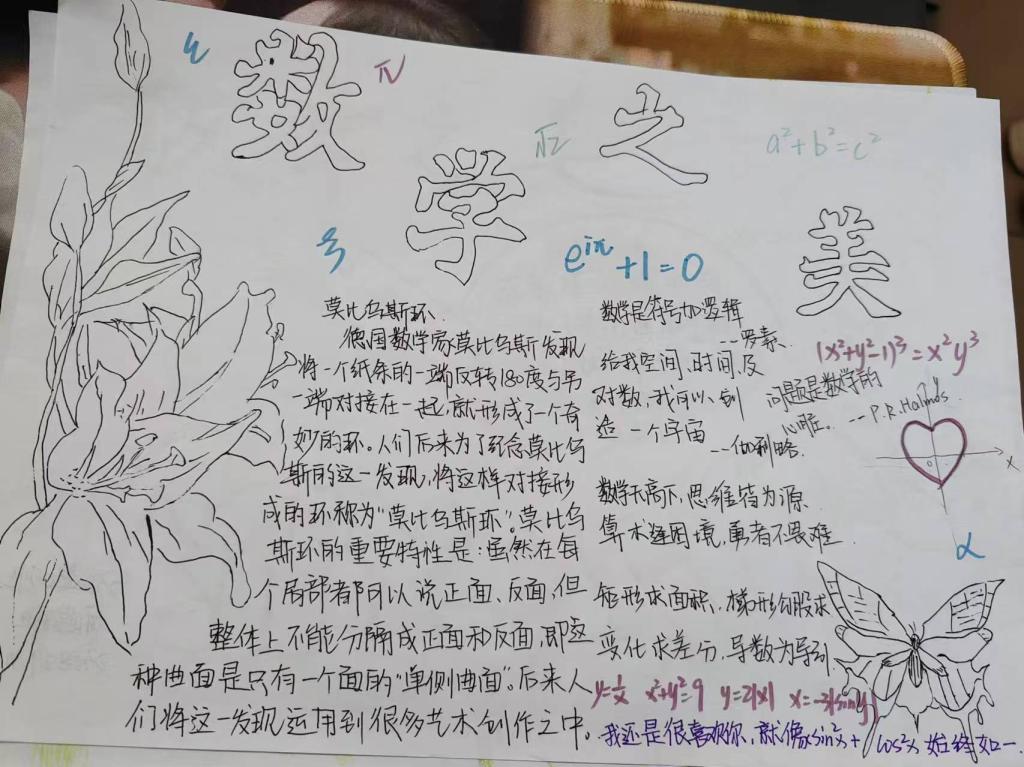 数学之美
π
√2
a²+b²=c²
e^{iπ}+1=0
莫比乌斯环.
德国数学家莫比乌斯发现
将一个纸条的一端反转180度与另
一端对接在一起,就形成了一个奇
妙的环。人们后来为了纪念莫比乌
斯的这一发现,将这样对接形
成的环称为"莫比乌斯环"。莫比乌
斯环的重要特性是:虽然在每
个局部都可以说正面、反面,但
整体上不能分隔成正面和反面,即这
种曲面是只有一个面的"单侧曲面"。后来人
们将这一发现运用到很多艺术创作之中。
数学是符号加逻辑
--罗素、
给我空间、时间、及
对数,我可以创
造一个宇宙
--伽利略.
(x²+y²-1)³=x²y³
问题是数学的
心脏。--P.R.Halmos
y
x
0
数学天高下,思维皆为源
算术逢困境,勇者不畏难.
α
矩形求面积,梯形勾股求
变化求差分,导数为导列
y=1/x x²+y²=9 y=2|x| x=-3|siny|
我还是很喜欢你,就像sin²x+cos²x,始终如一.